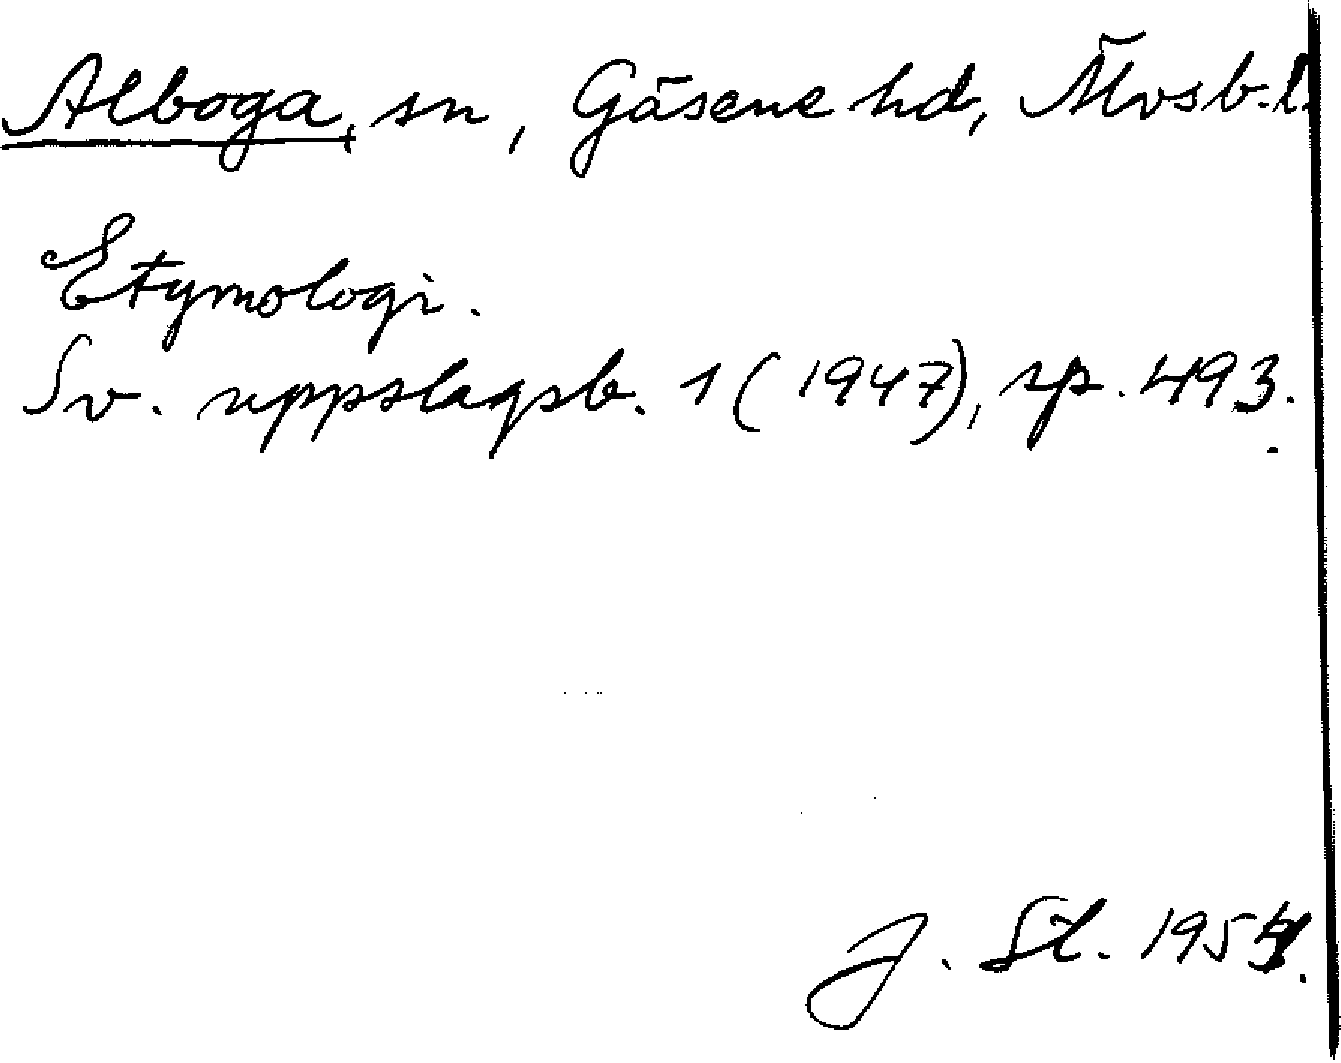 Alboga, sn, Gäsene hd, Älvsb.l.
Etymologi.
Sv. uppslagsb. 1 (1947), sp. 493.
J. St. 1954.